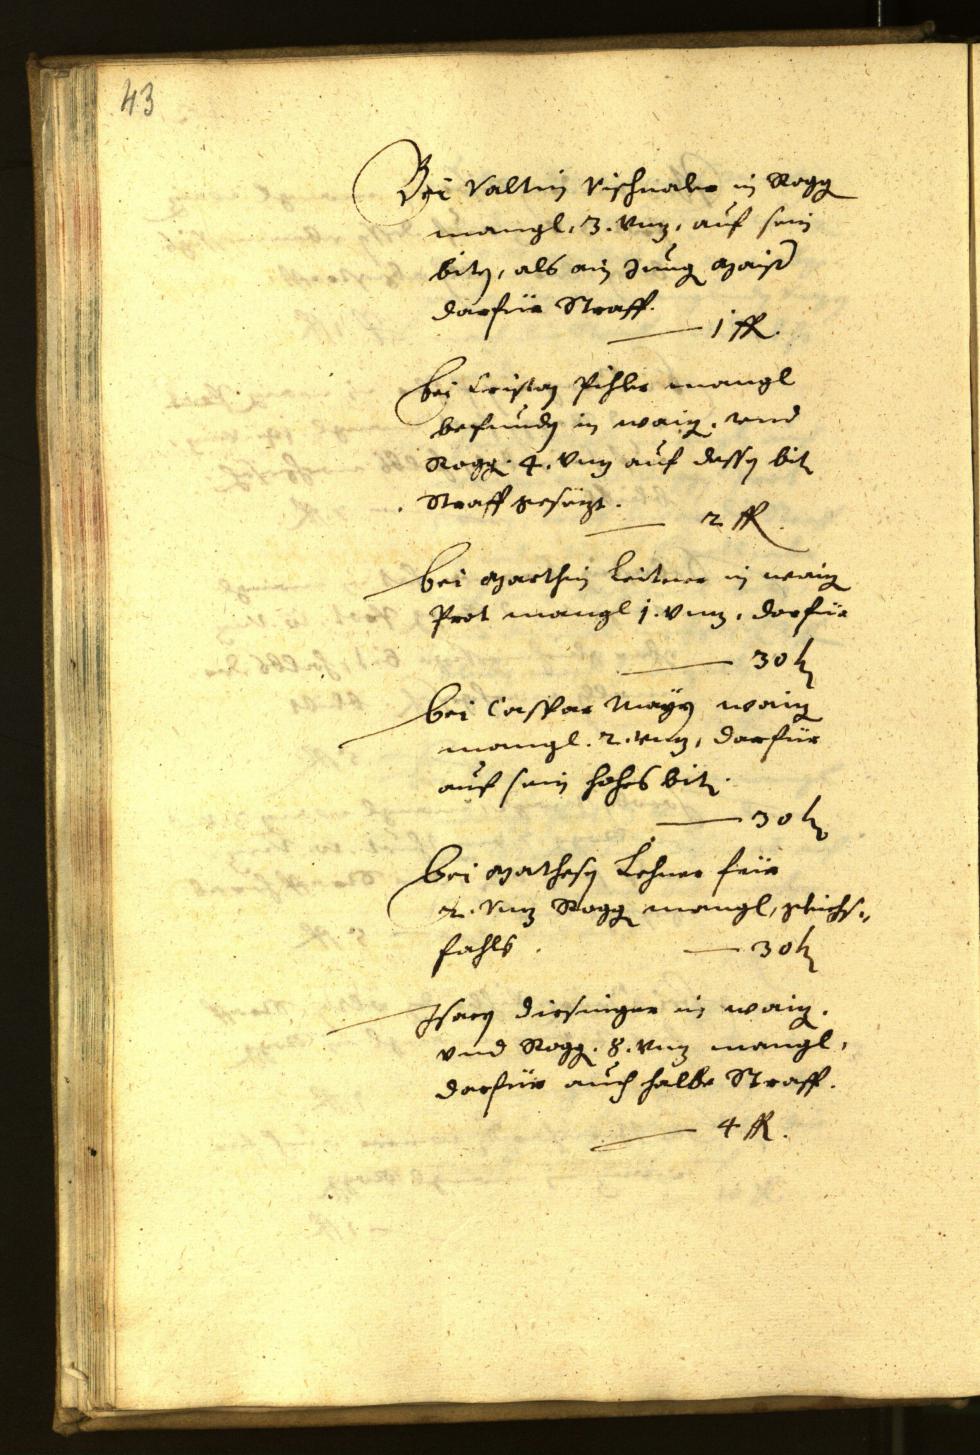 43
Bei Valtin Vischnaler in Rogg
mangl, 3. Vnz, auf sein
bitn, als ain Jung Maistr
darfür Straff.
1 fl.
bei Cristan Pihler mangl
befundn in waiz. vnd
Rogg. 4. Vnz auf dessn bit
Straff gesözt.
2 fl.
bei Marthin Leitner in waiz
Prot mangl 1. Vnz, darfür
30 kr
bei Caspar Mayr waiz
mangl. 2. vnz, darfür
auf sein hohes bit.
30 kr
bei Mathesn Lehner für
2. Vnz Rogg mangl, gleichs-
fahls. 30 kr
Isacn Dirsinger in waiz.
vnd Rogg. 8. vnz mangl,
darfür auch halbe Straff.
4 fl.